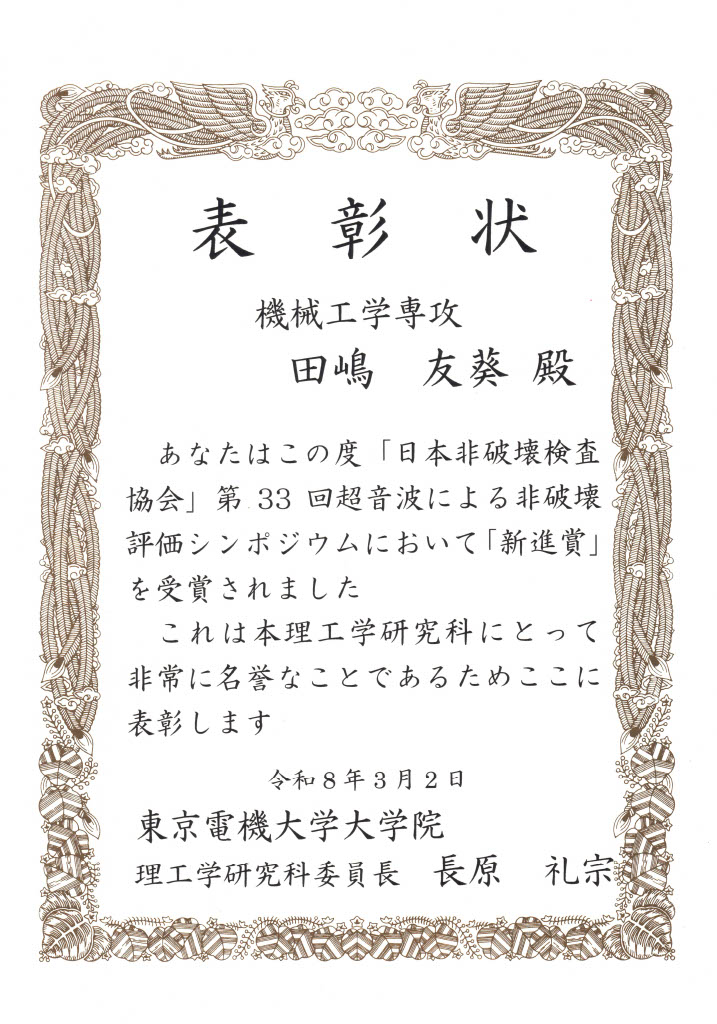 表彰状
機械工学専攻
田嶋 友葵 殿
あなたはこの度「日本非破壊検査
協会」第 33 回超音波による非破壊
評価シンポジウムにおいて「新進賞」
を受賞されました
これは本理工学研究科にとって
非常に名誉なことであるためここに
表彰します
令和8年3月2日
東京電機大学大学院
理工学研究科委員長 長原 礼宗